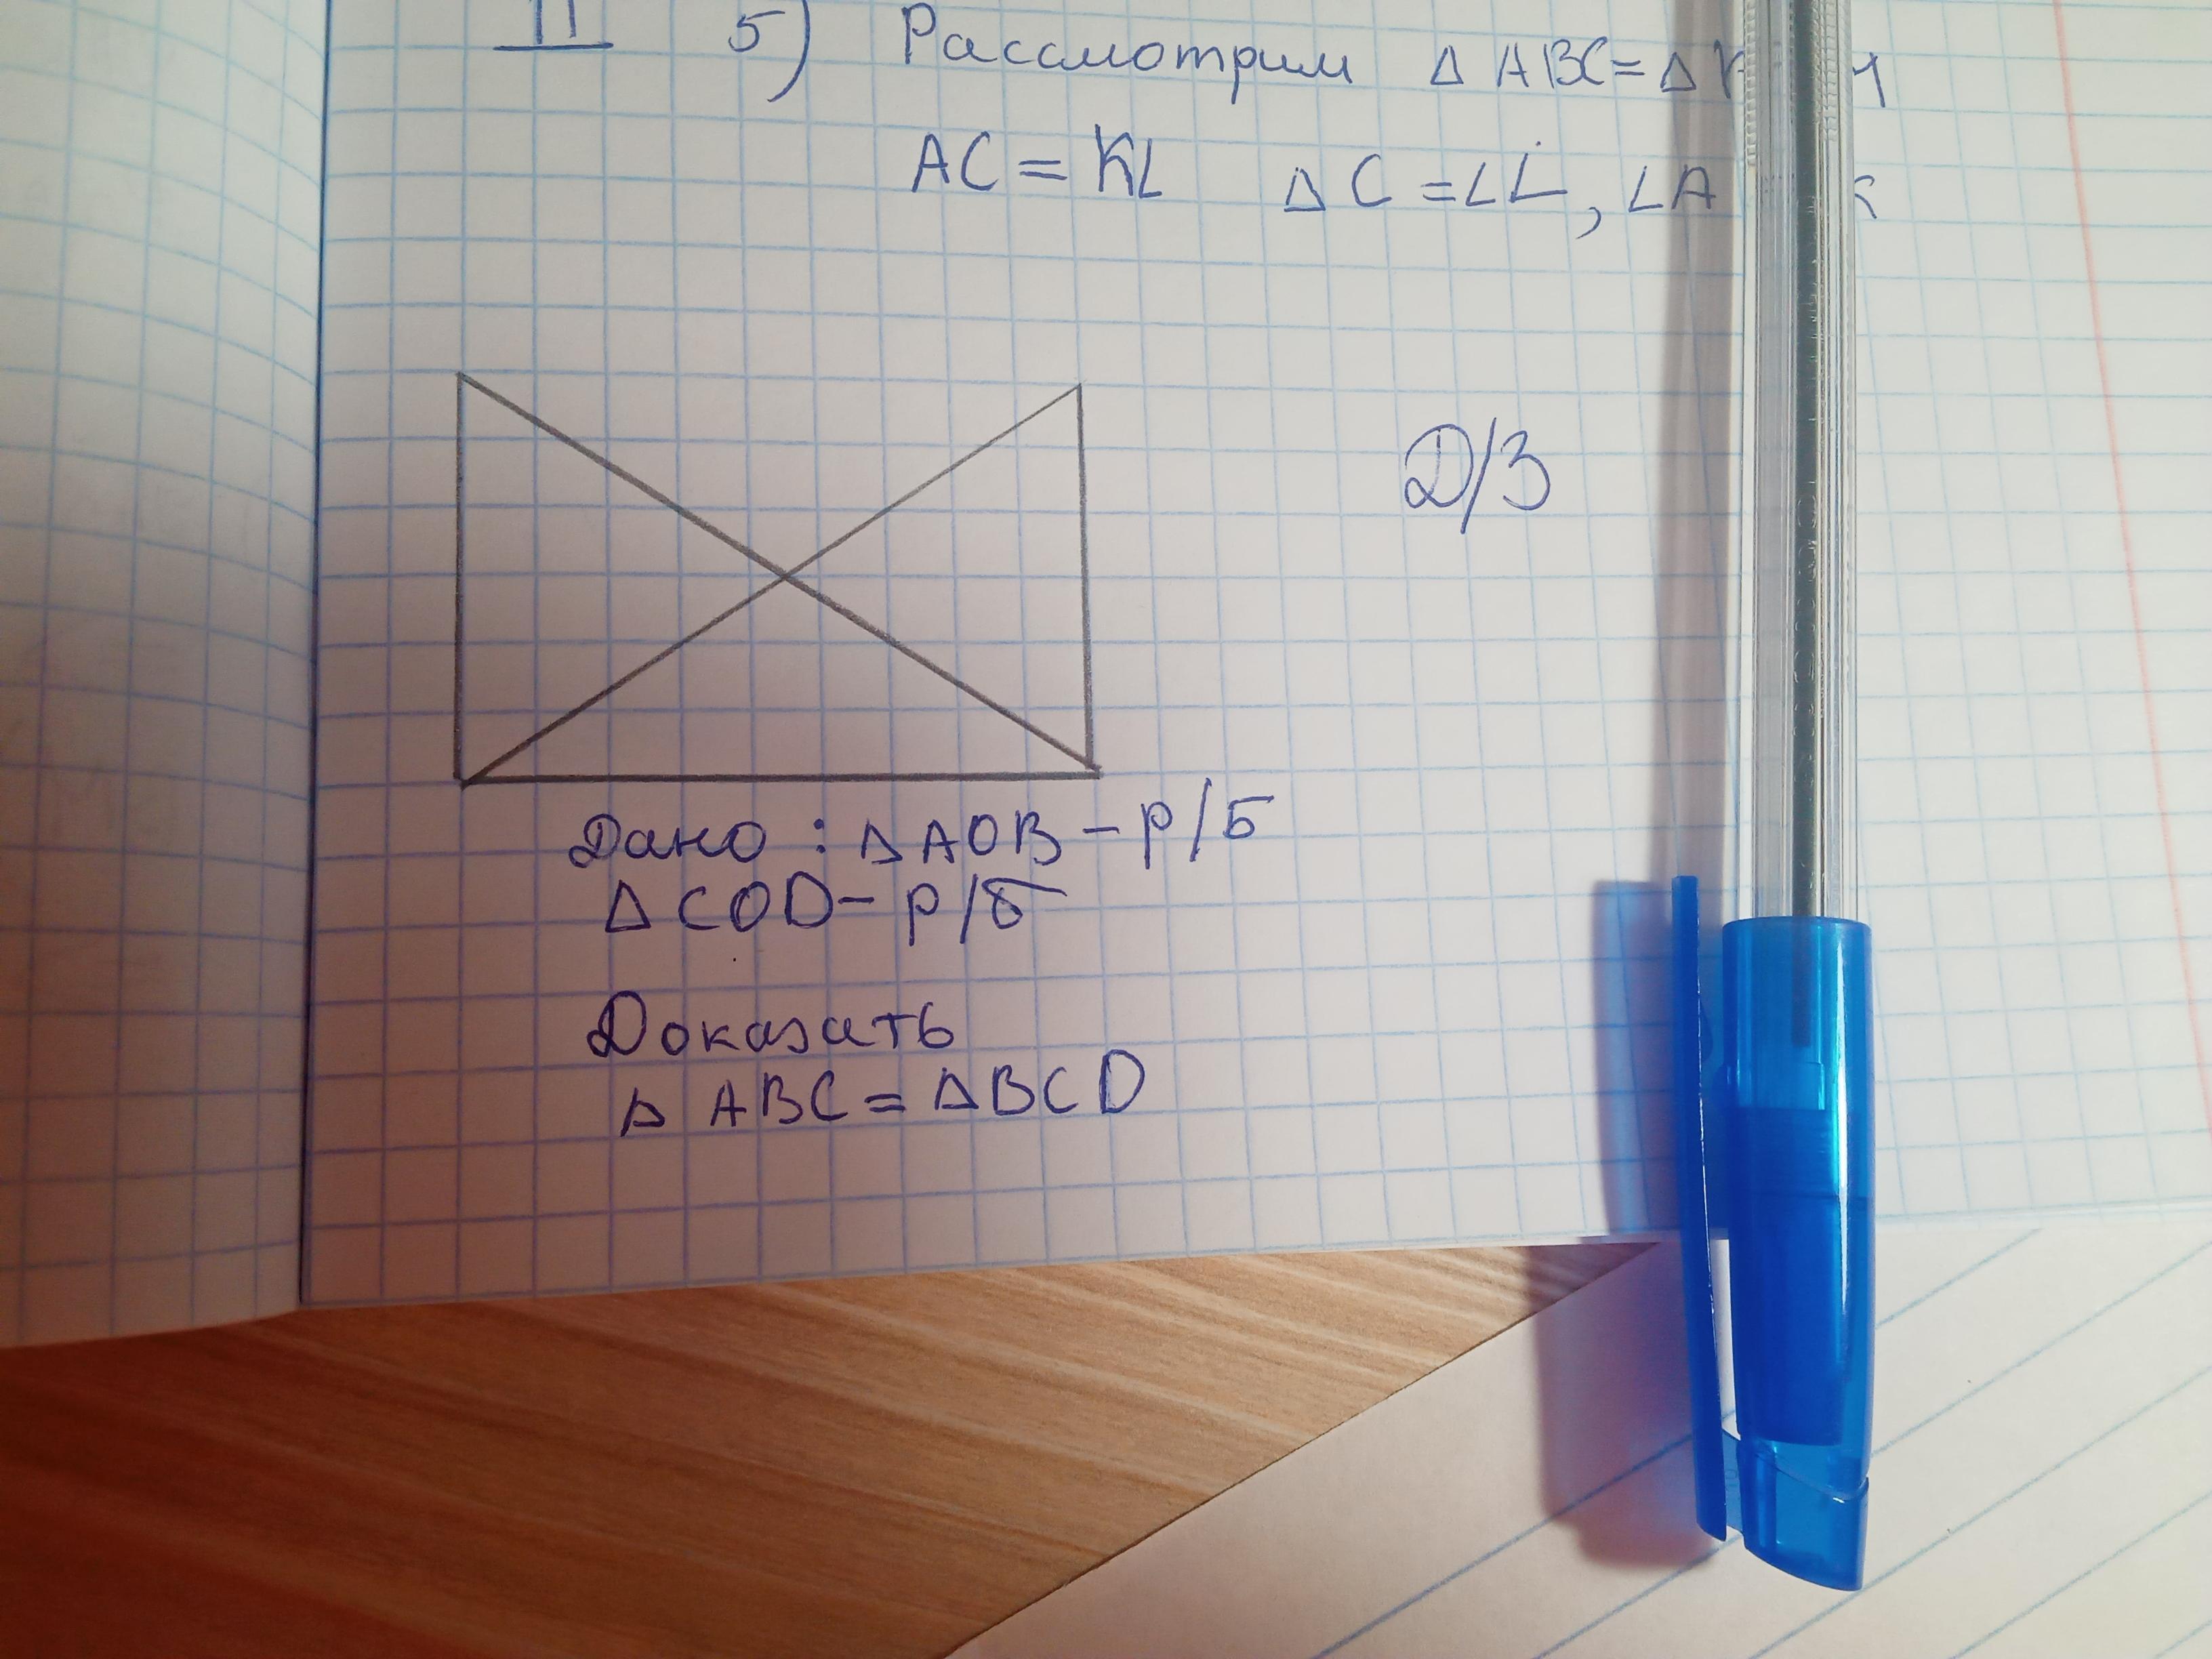 II 5) Рассмотрим Δ ABC = Δ
AC = KL Δ C = ∠L, ∠A
Д/З
Дано : Δ AOB – р/б
Δ COD – р/б
Доказать
Δ ABC = Δ BCD